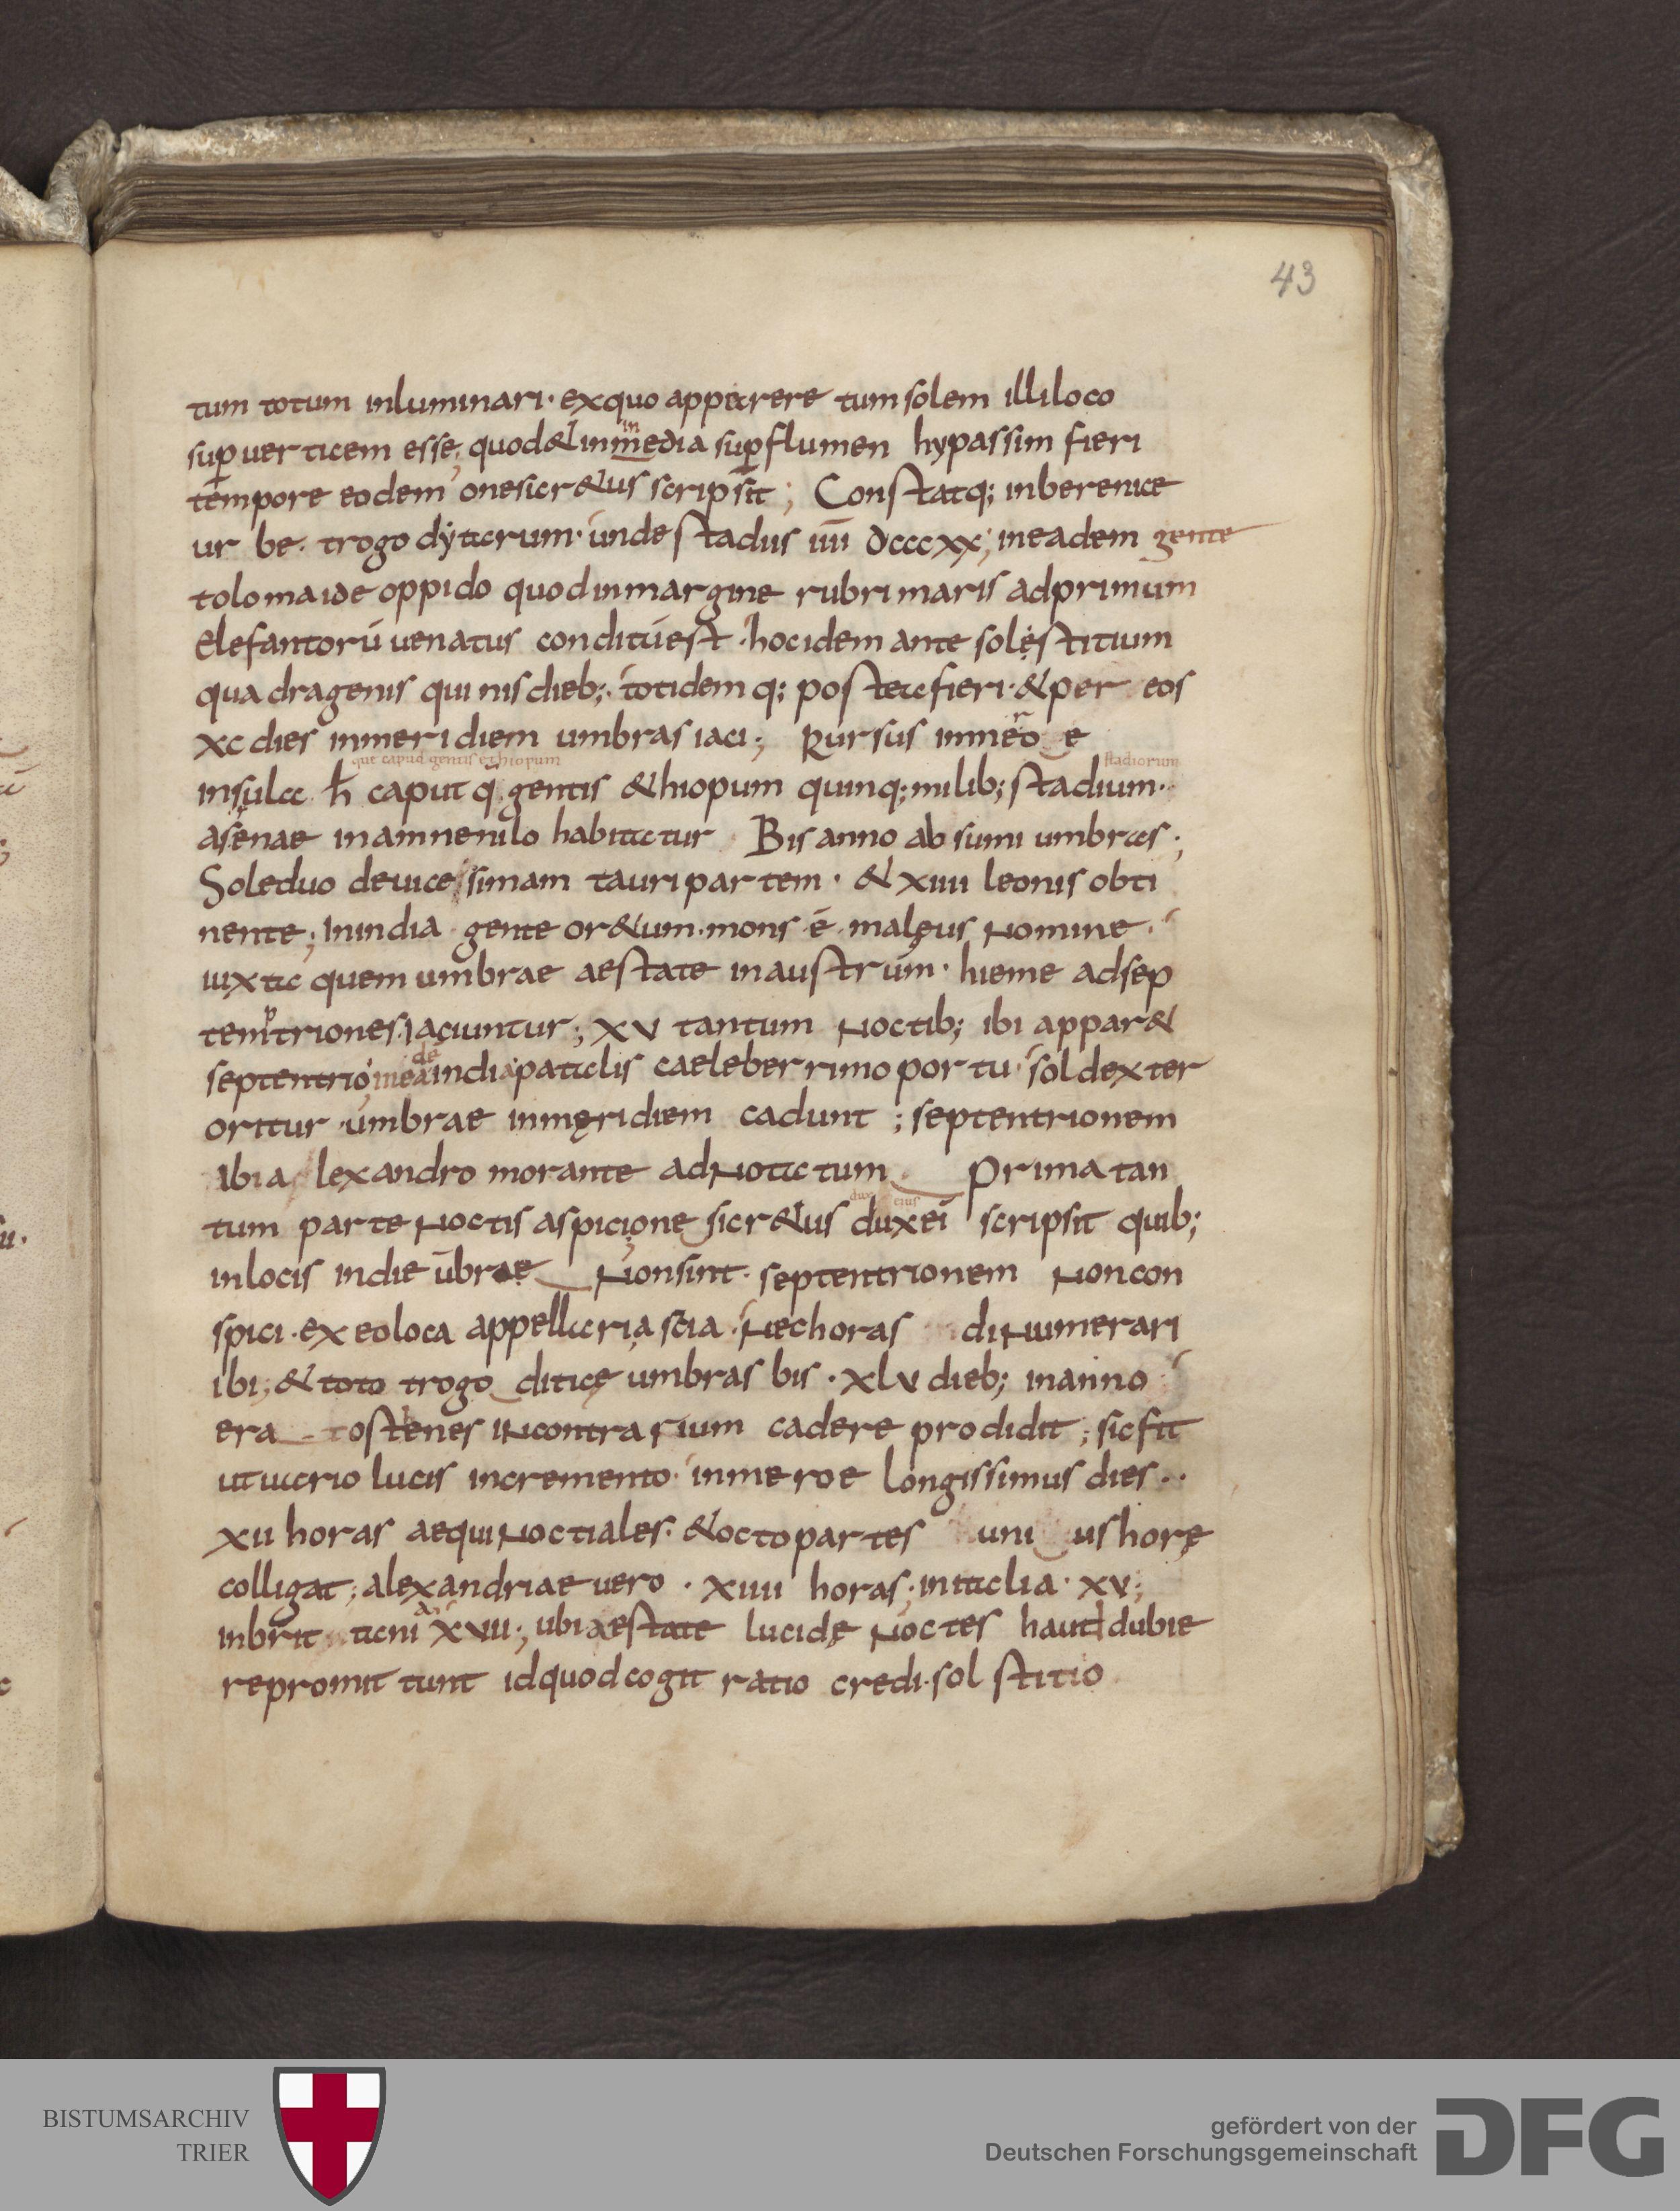 43
tum totum inluminari· exquo apparere tum solem illi loco
sup̱ uerticem esse; quod & in inmedia sup̱ flumen hypassim fieri
tempore eodem onesicr&us scripsit; Constatq; inberenice
urbe· trogodyticarum· unde stadiis iiii dcccxx; ineadem gente
tolomaide oppido quod inmargine rubri maris adprimum
elefantorū uenatus conditū est· hoc idem ante solęstitium
quadragenis quinis dieb;· totidemq; postea fieri· & per eos
xc dies inmeridiem umbras iaci; Rursus inmeroe
qui capud gentis ethiopum
stadiorum
insula h̄ caput q̄ gentis &hiopum quinq; milib; stadium·
asenae inamnenilo habitatur Bis anno absumi umbras;
Sole duo deuicessimam tauri partem· & xiiii leonis obti
nente; inindia gente or&um· mons ē maleus nomine·
iuxta quem umbrae aestate inaustrum· hieme adsep
temptriones iaciuntur; xv tantum noctib; ibi appar&
septentrio; in eadē india patalis caeleberrimo portu sol dexter
oritur umbrae inmęridiem cadunt; septentrionem
ibi alexandro morante adnotatum Prima tan
dux eius
tum parte noctis aspici onesicr&us dux ei scripsit quib;
inlocis indie ūbrae Non sint· septentrionem noncon
spici· ex eo loca appellari ascia· nec horas dinumerari
ibi; & toto trogoditicę umbras bis· xlv dieb; inanno
eratostenes incontrarium cadere prodidit; sicfit
ut uario lucis incremento· inmeroe longissimus dies··
xii horas aequinoctiales· & octo partes unius horę
colligat; alexandriae uero· xiiii horas; initalia· xv;
inbritania xvii; ubi aestate lucidę noctes haut dubie
repromittunt id quod cogit ratio credi· solstitio
BISTUMSARCHIV
TRIER
gefördert von der
Deutschen Forschungsgemeinschaft
DFG